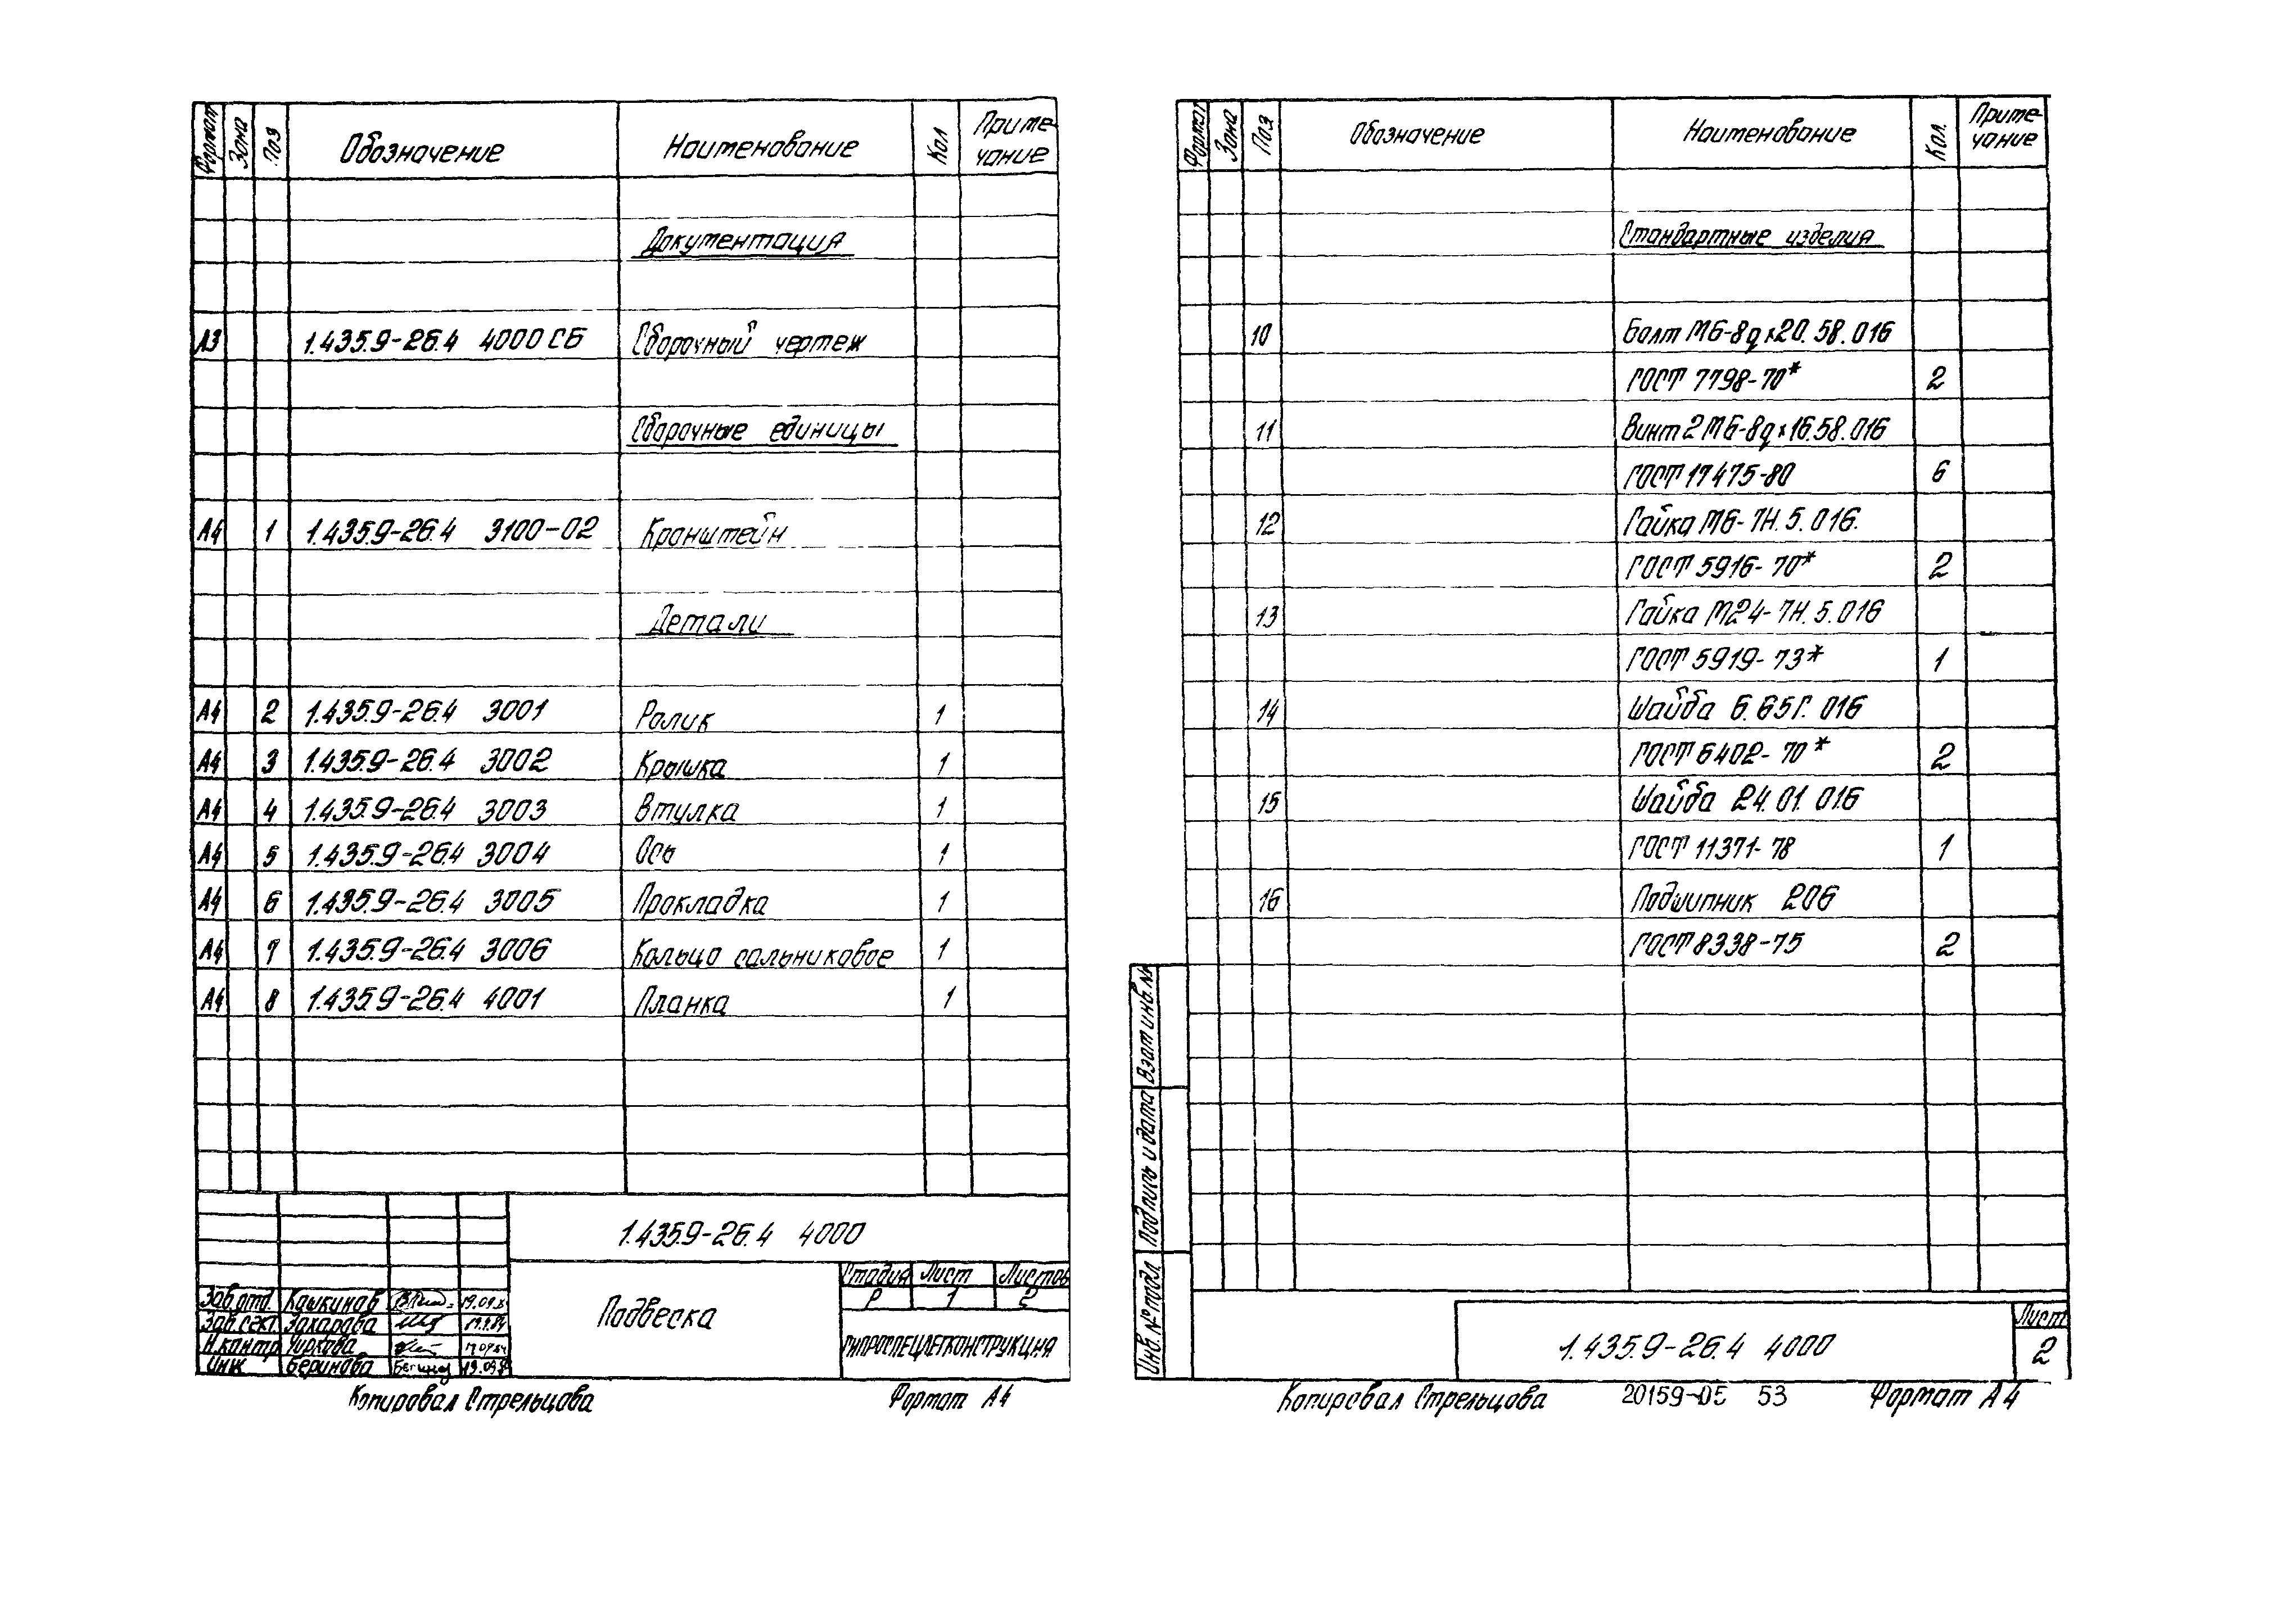 Формат Зона Поз Обозначение Наименование Кол Приме-
чание
Документация
А3 1.435.9-26.4 4000 СБ Сборочный чертеж
Сборочные единицы
А4 1 1.435.9-26.4 3100-02 Кронштейн
Детали
А4 2 1.435.9-26.4 3001 Ролик 1
А4 3 1.435.9-26.4 3002 Крышка 1
А4 4 1.435.9-26.4 3003 Втулка 1
А4 5 1.435.9-26.4 3004 Ось 1
А4 6 1.435.9-26.4 3005 Прокладка 1
А4 7 1.435.9-26.4 3006 Кольцо сальниковое 1
А4 8 1.435.9-26.4 4001 Планка 1
1.435.9-26.4 4000
Стадия Лист Листов
Р 1 2
Подвеска
ГИПРОСПЕЦЛЕГКОНСТРУКЦИЯ
Зав.отд. Кашкинов 19.09.8
Зав.сект. Захарова 19.9.84
Н.контр Чиркова 19.09.84
Инж Беринова 19.09.8
Копировал Стрельцова Формат А4
Формат Зона Поз Обозначение Наименование Кол. Приме-
чание
Стандартные изделия
10 Болт М6-8g×20.58.016
ГОСТ 7798-70* 2
11 Винт 2М6-8g×16.58.016
ГОСТ 17475-80 6
12 Гайка М6-7Н.5.016.
ГОСТ 5916-70* 2
13 Гайка М24-7Н.5.016
ГОСТ 5919-73* 1
14 Шайба 6.65Г.016
ГОСТ 6402-70* 2
15 Шайба 24.01.016
ГОСТ 11371-78 1
16 Подшипник 206
ГОСТ 8338-75 2
Взам инв.№
Подпись и дата
Инв.№ подл.
1.435.9-26.4 4000
Лист
2
Копировал Стрельцова 20159-05 53 Формат А4